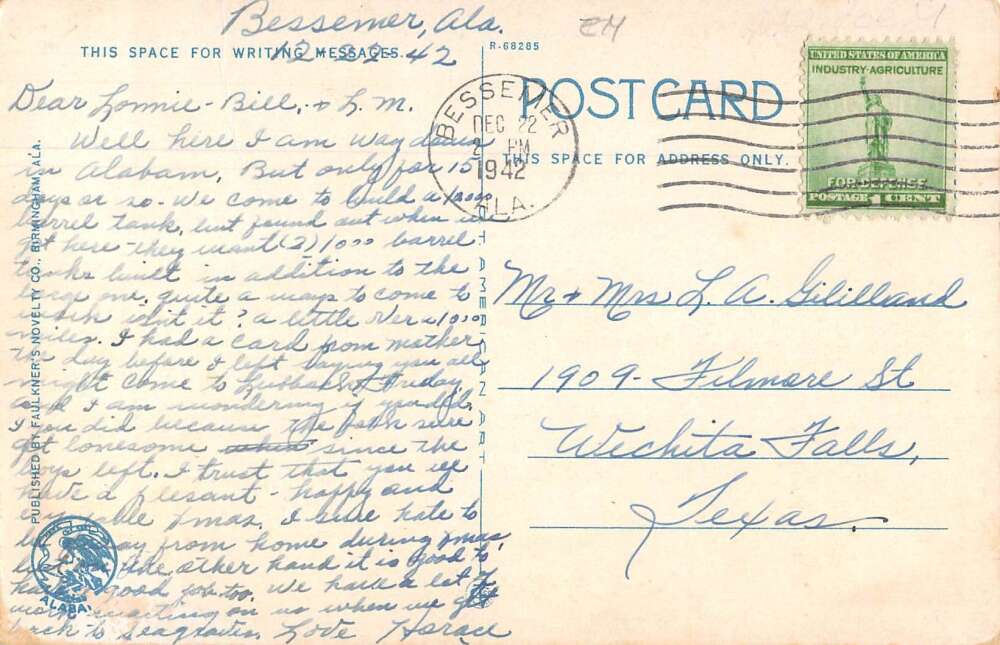 Bessemer, Ala.
THIS SPACE FOR WRITING MESSAGES.
12-22-42
Dear Lonnie - Bill, + L. M.
Well here I am way down
in Alabam, But only for 15
days or so - we come to build a 10000
barrel tank, but found out when we
got here - they want (2) 1000 barrel
tanks built in addition to the
large one, quite a ways to come to
work isn't it? a little over 1000
miles. I had a card from mother
the day before I left saying you all
might come to Lubbock Friday
and I am wondering if you did.
you did because the folks sure
get lonesome since the
boys left. I trust that you all
have a plesant - happy and
Xmas, I sure hate to
be away from home during Xmas,
but on the other hand it is good to
have a good job too. We have a lot of
work waiting on us when we get
back to Seagraves Love Horace
PUBLISHED BY FAULKNER'S NOVELTY CO., BIRMINGHAM, ALA.
ALABA
R-68285
POST CARD
THIS SPACE FOR ADDRESS ONLY.
BESSEMER
DEC 22
2 PM
1942
ALA.
UNITED STATES OF AMERICA
INDUSTRY-AGRICULTURE
FOR DEFENSE
POSTAGE 1 CENT
AMERICAN ART
Mr + Mrs L. A. Gililland
1909 - Filmore St
Wechita Falls,
Texas.